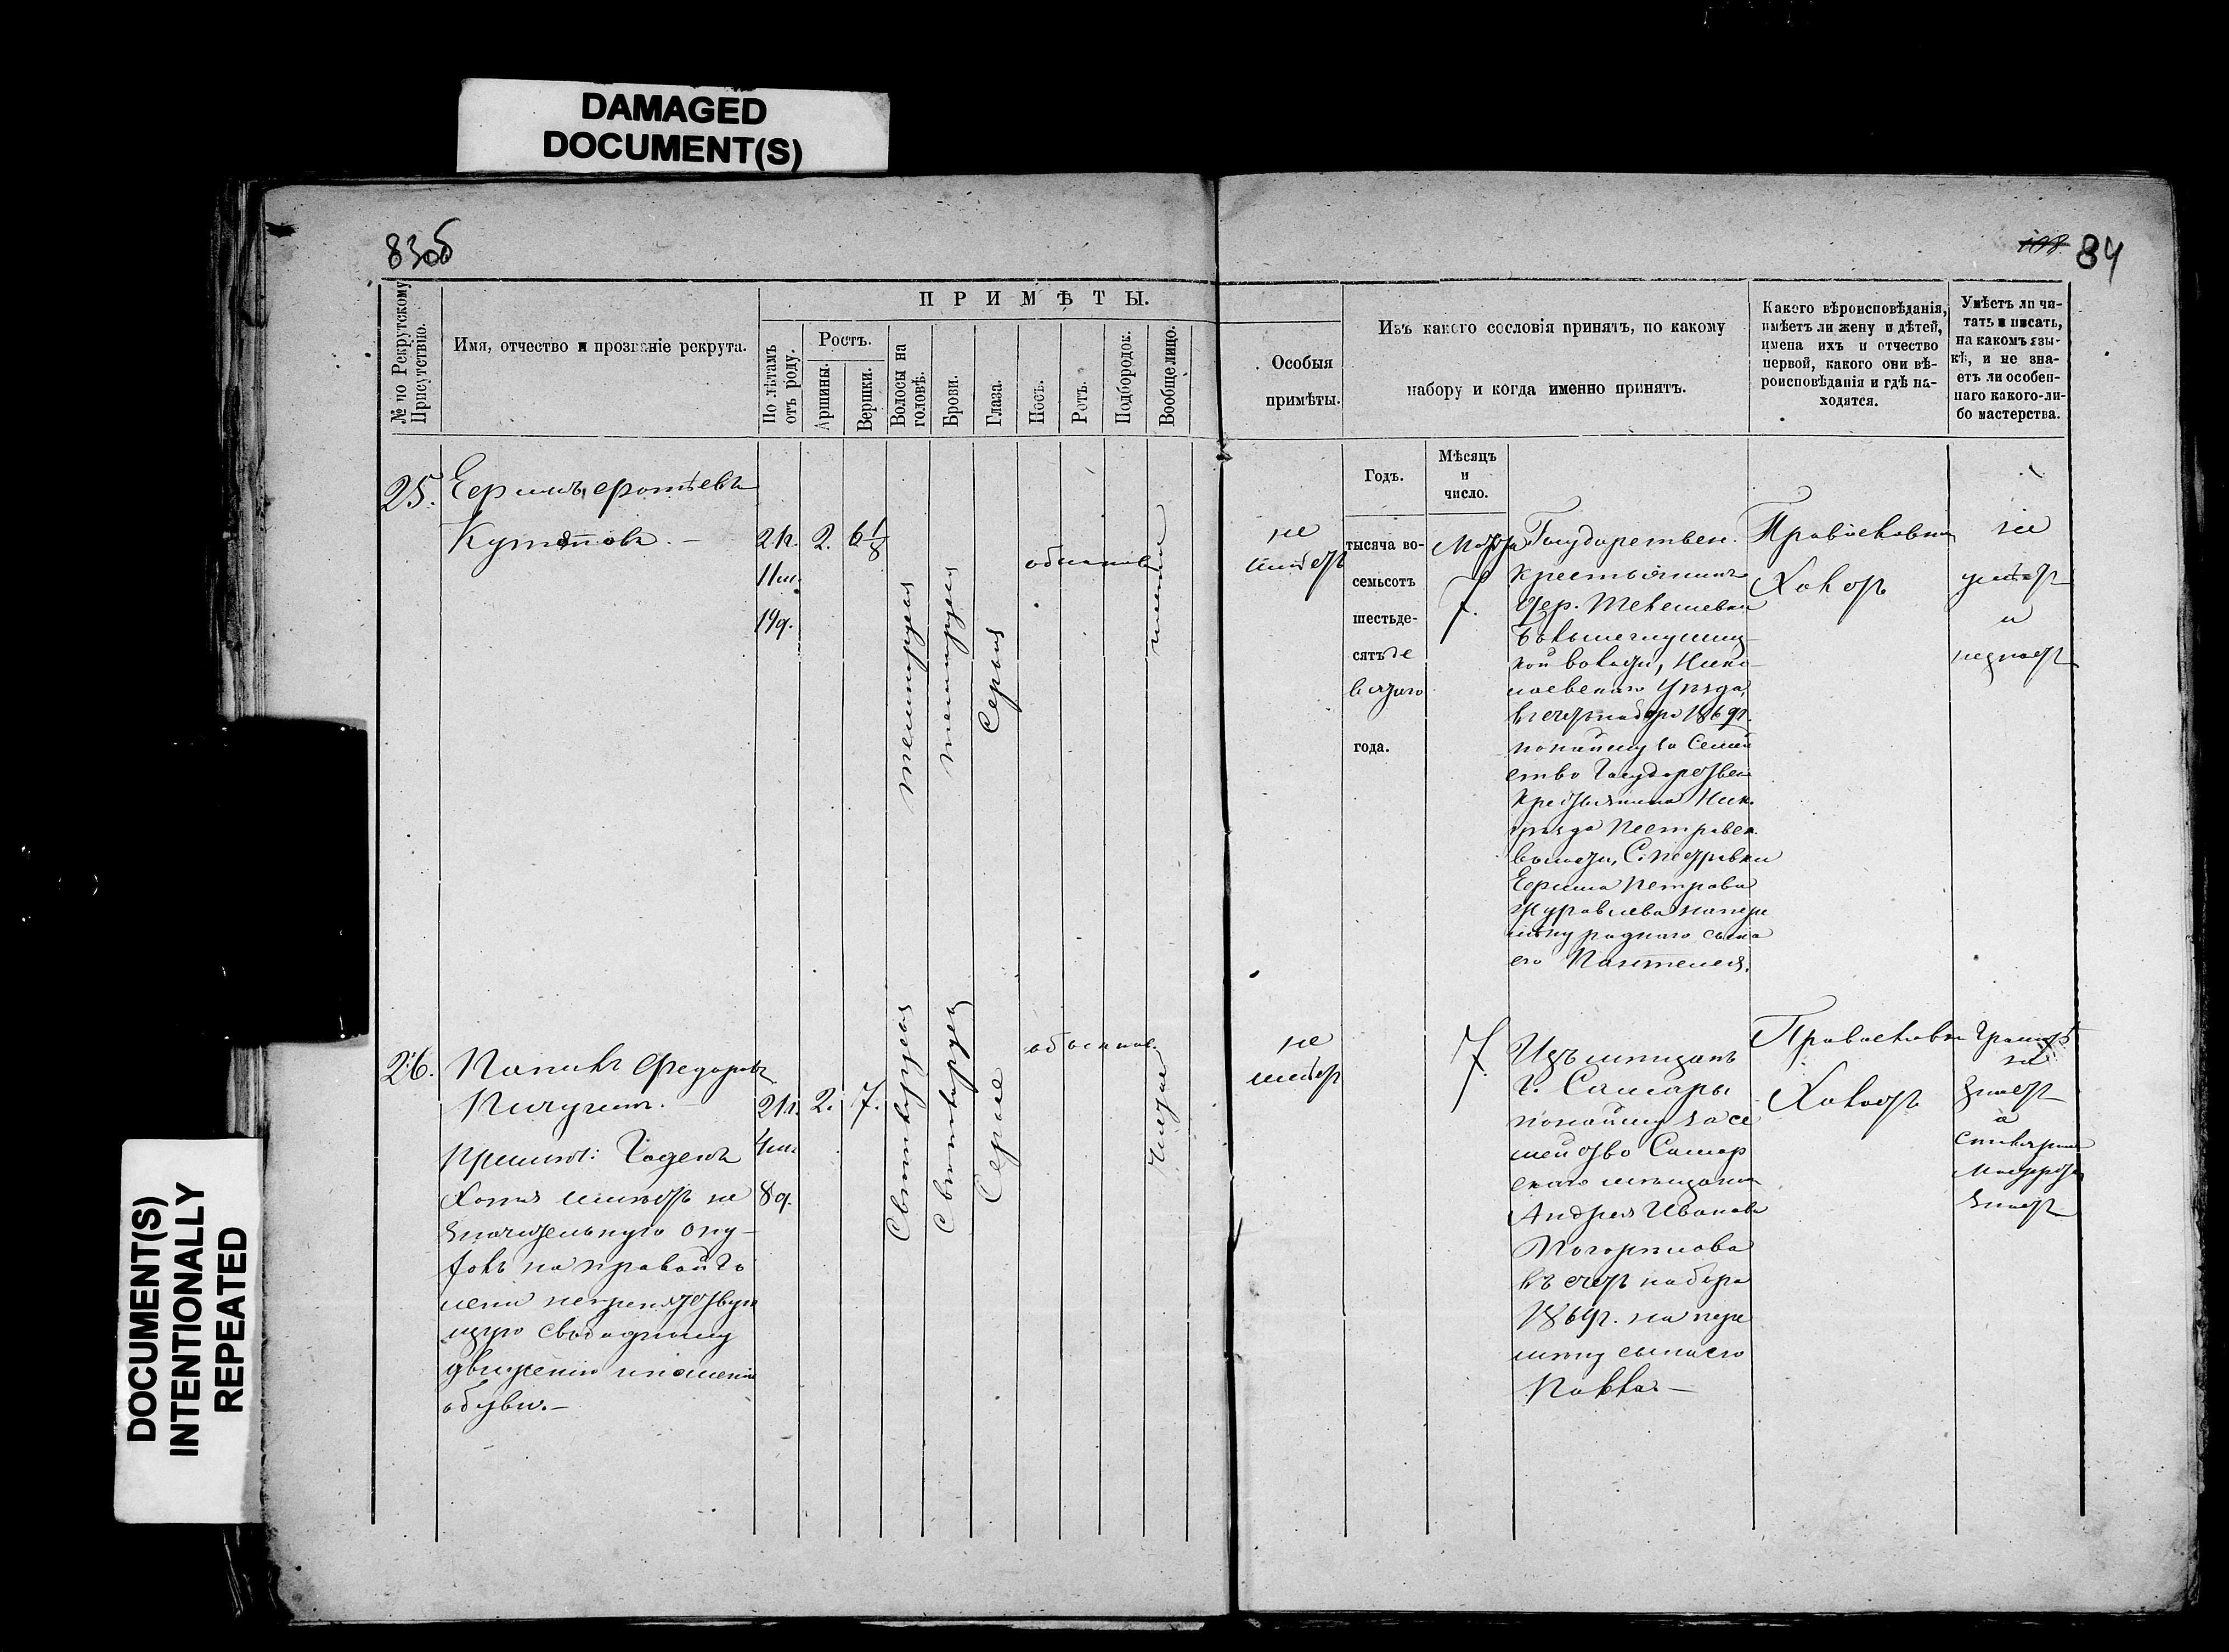 DAMAGED
DOCUMENT(S)
83об
108 84
№ по Рекрутскому
Присутствію.
Имя, отчество и прозваніе рекрута.
ПРИМѢТЫ.
По лѣтамъ
отъ роду.
Ростъ.
Аршины.
Вершки.
Волосы на
головѣ.
Брови.
Глаза.
Носъ.
Ротъ.
Подбородок.
Вообще лицо.
Особыя
примѣты.
Изъ какого сословія принятъ, по какому
набору и когда именно принятъ.
Какого вѣроисповѣданія,
имѣетъ ли жену и дѣтей,
имена ихъ и отчество
первой, какого они вѣ-
роисповѣданія и гдѣ на-
ходятся.
Умѣетъ ли чи-
тать и писать,
на какомъ язы-
кѣ, и не зна-
етъ ли особен-
наго какого-ли-
бо мастерства.
Годъ.
Мѣсяцъ
и
число.
25.
Ефимъ Фотіевъ
2. 6 1/8
11 м.
19 д.
темнорусыя
темнорусыя
Серыя
обыкнов
не
имѣетъ
тысяча во-
семьсотъ
шестьде-
сятъ де
вятаго
года.
Марта
7.
Государствен.
крестьянинъ
дер. Текешевки
кой волости, Нико-
лаевскаго Уѣзда,
въ счетъ набора 1869 г.
по найму за Семей
ство Государствен
крестьянина Ник.
уѣзда Пестравск.
волости, С. Пестравки
Ефима Петрова
Журавлева на пере
мѣну роднаго сына
его Пантелея.
Православн
Холостъ
не
умѣетъ
и
незнаетъ
26.
Федоровъ
Пичугинъ.
21 л. 2. 7.
4 м.
8 д.
Примѣт: Годенъ
Хотя имѣетъ не
значительную опу-
холь на правой го
лени непрепятствую
щую свободному
движенію и ношенію
обуви.-
Светлорусыя
Светлорусыя
Серые
обыкнов.
Чистое
не
имѣетъ
7
Изъ мещанъ
г. Самары
по найму за се
мейство Самар
скаго мещанина
Андрея Иванова
въ счетъ набора
1869 г. на пере
мену сына его
Павла -
Православн
Холостъ
Грамотѣ
не
знаетъ
а
столярное
мастерство
знаетъ
DOCUMENT(S)
INTENTIONALLY
REPEATED